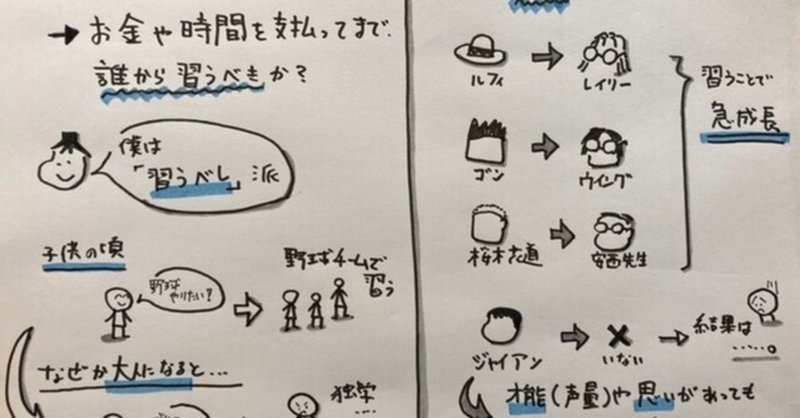 →お金や時間を支払ってまで
誰から習うべきか?
僕は
「習うべし」派
子供の頃
野球
やりたい?
野球チームで
習う
なぜか大人になると...
独学
ルフィ
レイリー
ゴン
ウイング
桜木花道
安西先生
習うことで
急成長
ジャイアン
いない
→結果は
......。
才能(声量)や思いがあっても